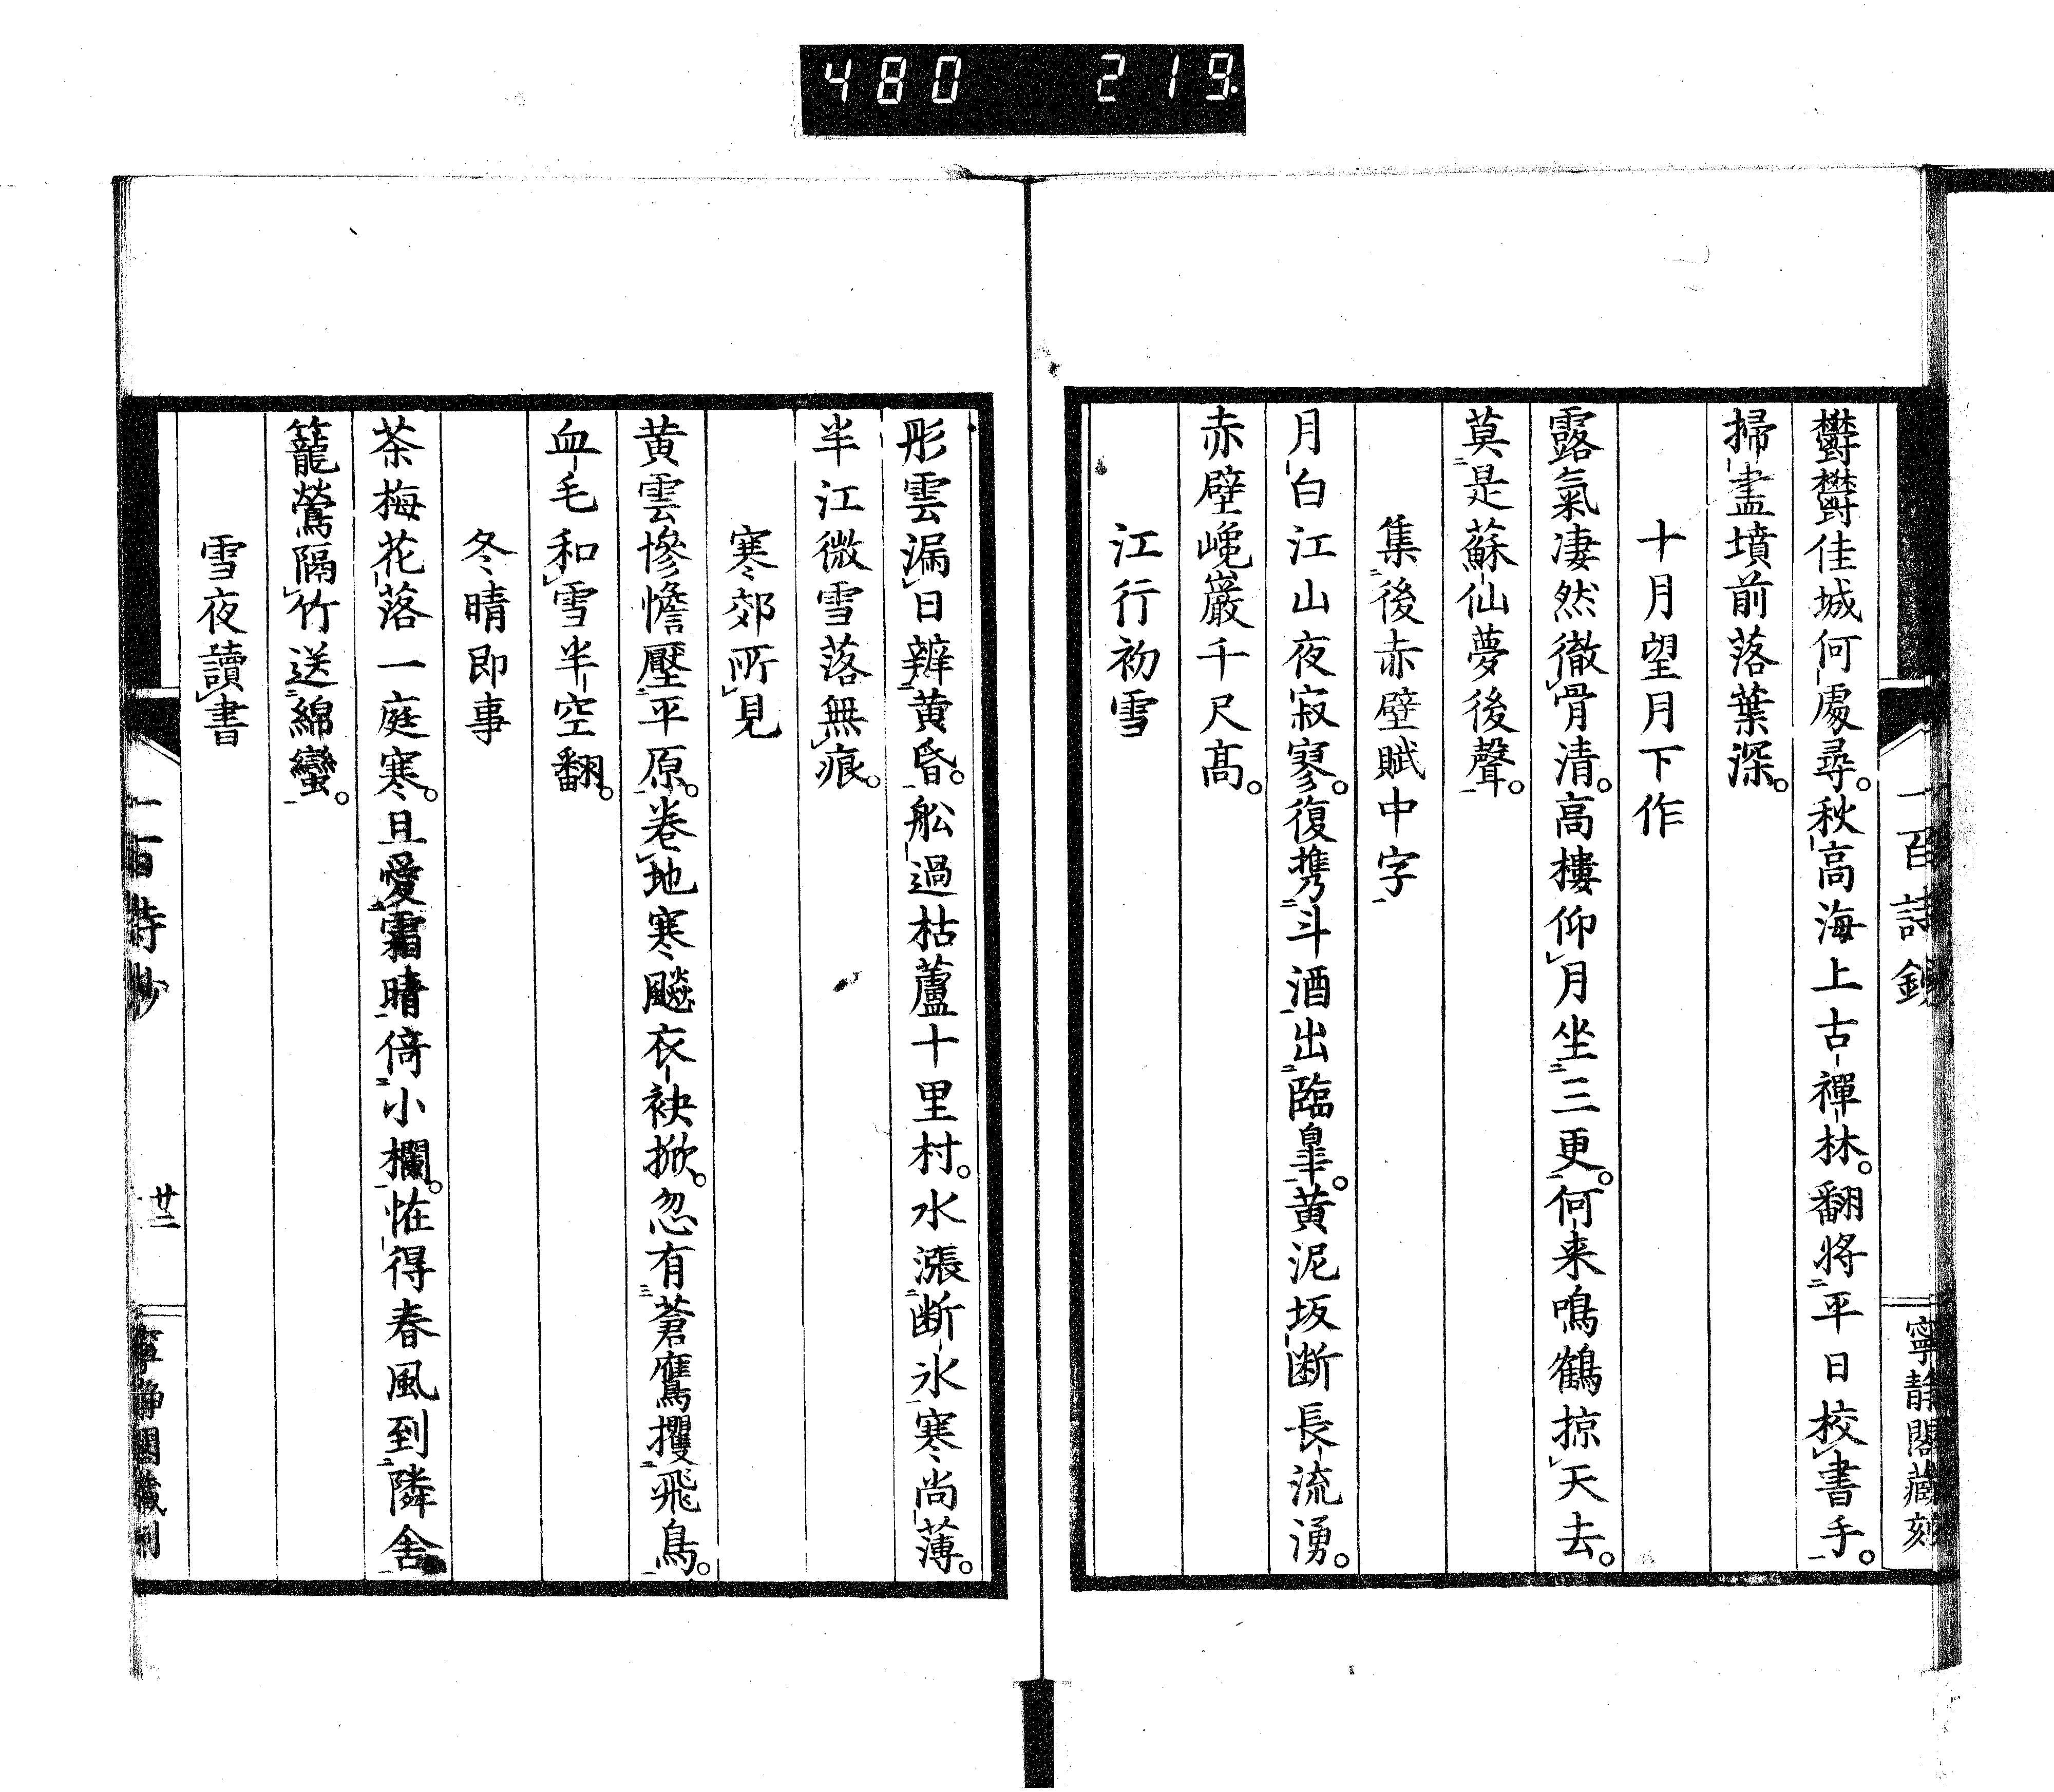 480 219
一百詩鈔
寧静閣藏刻
鬱鬱佳城何處尋。秋高海上古禪林。翻將平日校書手。
掃盡墳前落葉深。
十月望月下作
露氣凄然徹骨清。高樓仰月坐三更。何来鳴鶴掠天去。
莫是蘇仙夢後聲。
集後赤壁賦中字
月白江山夜寂寥。復携斗酒出臨皐。黄泥坂断長流湧。
赤壁巉巖千尺高。
江行初雪
彤雲漏日辨黄昏。舩過枯蘆十里村。水漲断氷寒尚薄。
半江微雪落無痕。
寒郊所見
黄雲慘憺壓平原。卷地寒飈衣袂掀。忽有蒼鷹攫飛鳥。
血毛和雪半空翻。
冬晴即事
茶梅花落一庭寒。且愛霜晴倚小欄。恠得春風到隣舎
籠鶯隔竹送綿蠻。
雪夜讀書
一百詩鈔
廿二
寧静閣藏刻